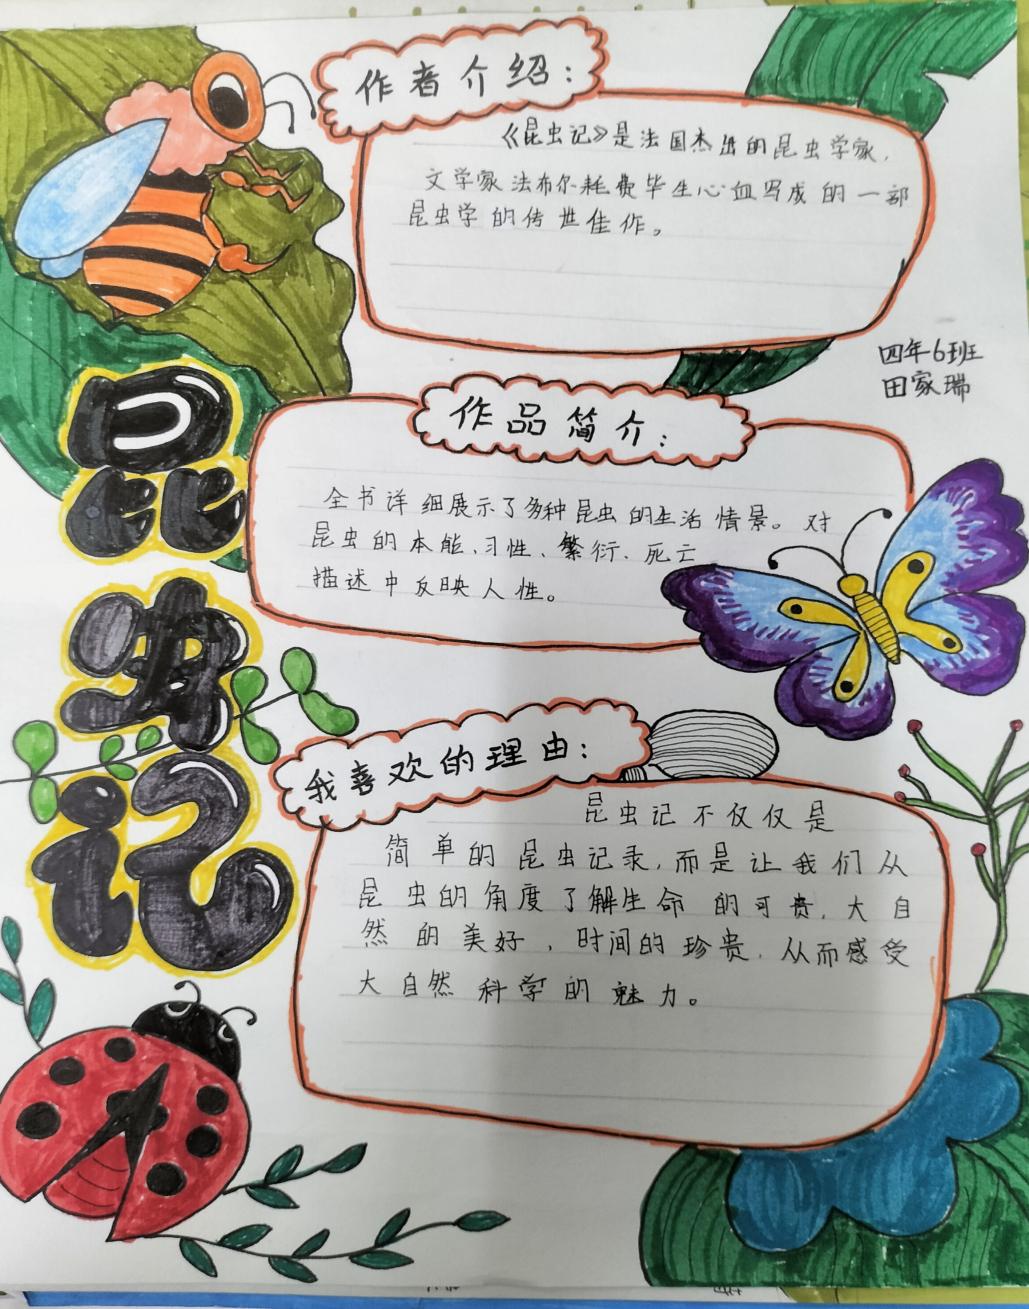 作者介绍：
《昆虫记》是法国杰出的昆虫学家，
文学家法布尔耗费毕生心血写成的一部
昆虫学的传世佳作。
四年6班
田家瑞
昆虫记
作品简介：
全书详细展示了多种昆虫的生活情景。对
昆虫的本能、习性、繁衍、死亡
描述中反映人性。
我喜欢的理由：
昆虫记不仅仅是
简单的昆虫记录，而是让我们从
昆虫的角度了解生命的可贵，大自
然的美好，时间的珍贵，从而感受
大自然科学的魅力。